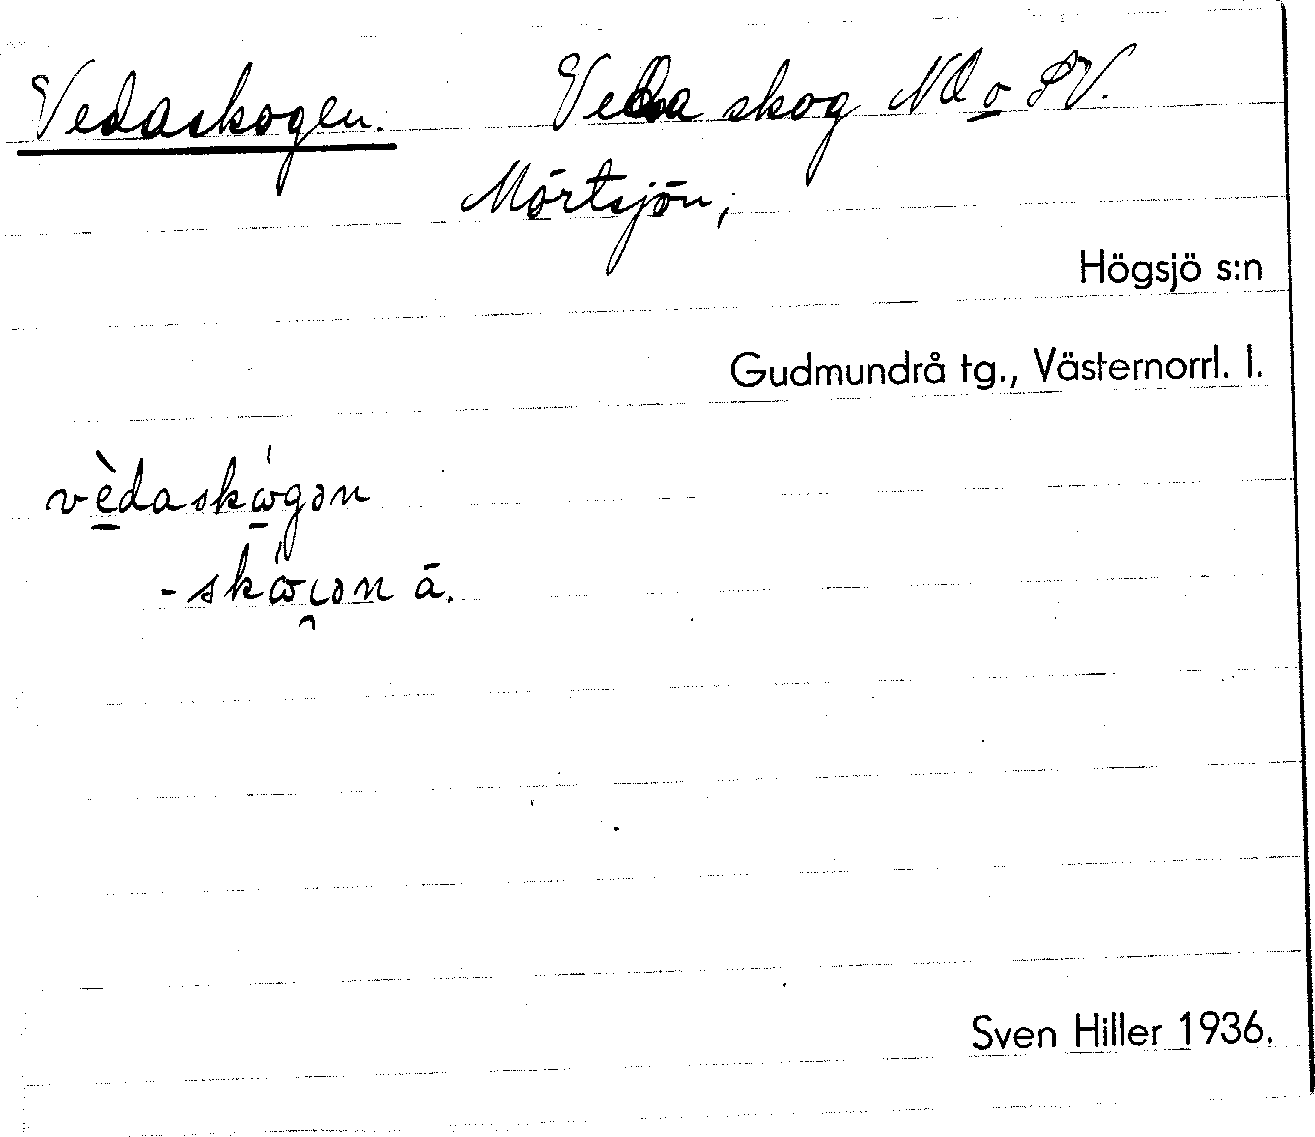 Vedaskogen. Veda skog NO o SV.
Mörtsjön,
Högsjö s:n
Gudmundrå tg., Västernorrl. l.
vèdaskɷ́gən
-skɷ́ɩən ä.
Sven Hiller 1936.